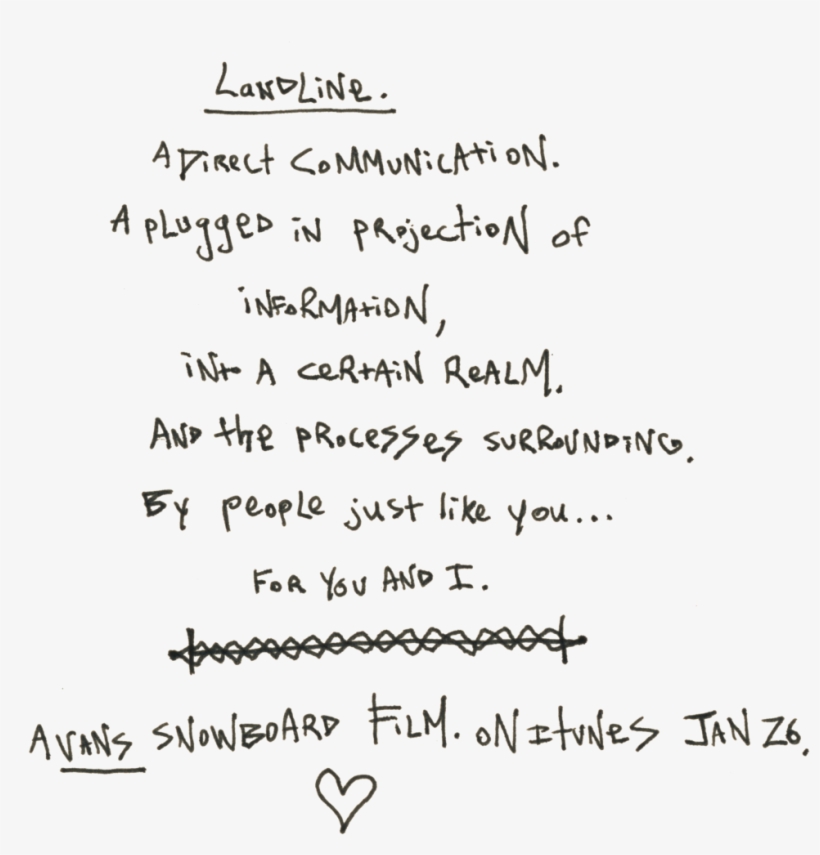 LANDLINE.
A DIRECT COMMUNICATION.
A PLUGGED IN PROJECTION OF
INFORMATION,
INTO A CERTAIN REALM.
AND the PROCESSES SURROUNDING.
By people just like you...
FOR YOU AND I.
A VANS SNOWBOARD FILM. ON ITUNES JAN 26.